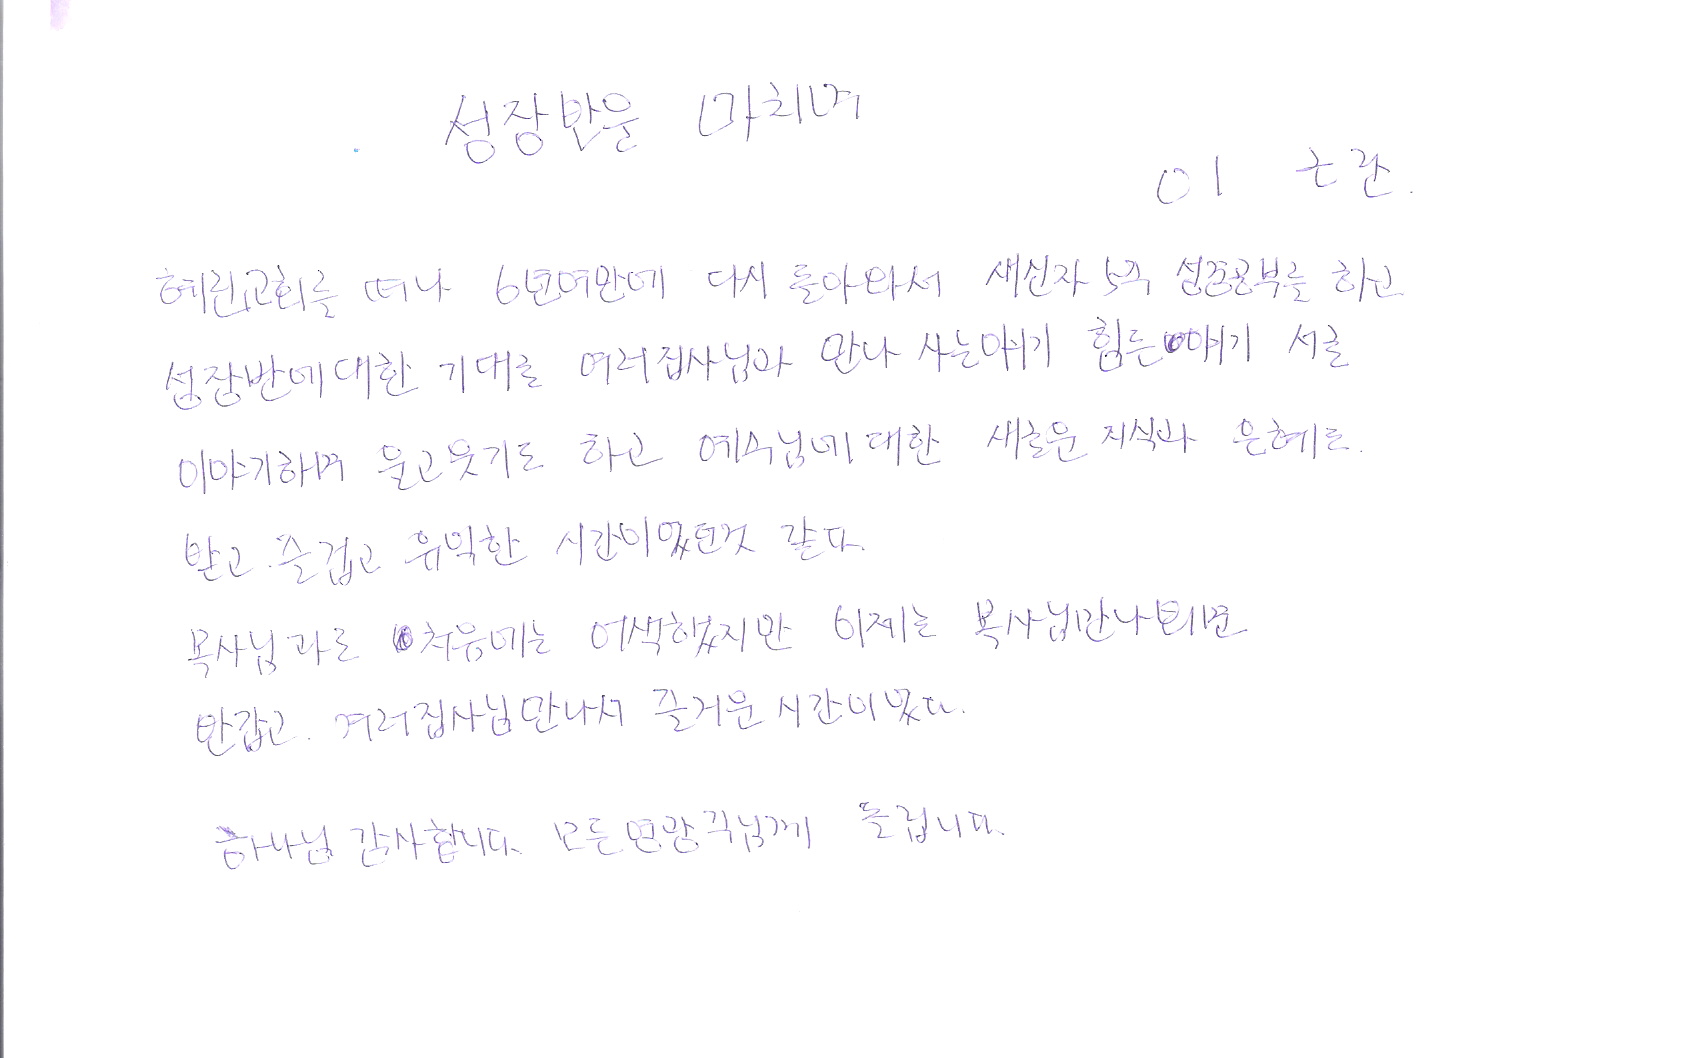 성장반을 마치며
이
혜린교회를 떠나 6년여만에 다시 돌아와서 새신자 5주 성경공부를 하고
성장반에대한 기대로 여러집사님과 만나 사는얘기 힘든얘기 서로
이야기하며 울고웃기도 하고 예수님에대한 새로운 지식과 은혜도.
받고. 즐겁고 유익한 시간이었던것 같다.
목사님과도 처음에는 어색했지만 이제는 목사님만나뵈면
반갑고. 여러집사님만나서 즐거운 시간이었다.
하나님 감사합니다. 모든영광 주님께 돌립니다.